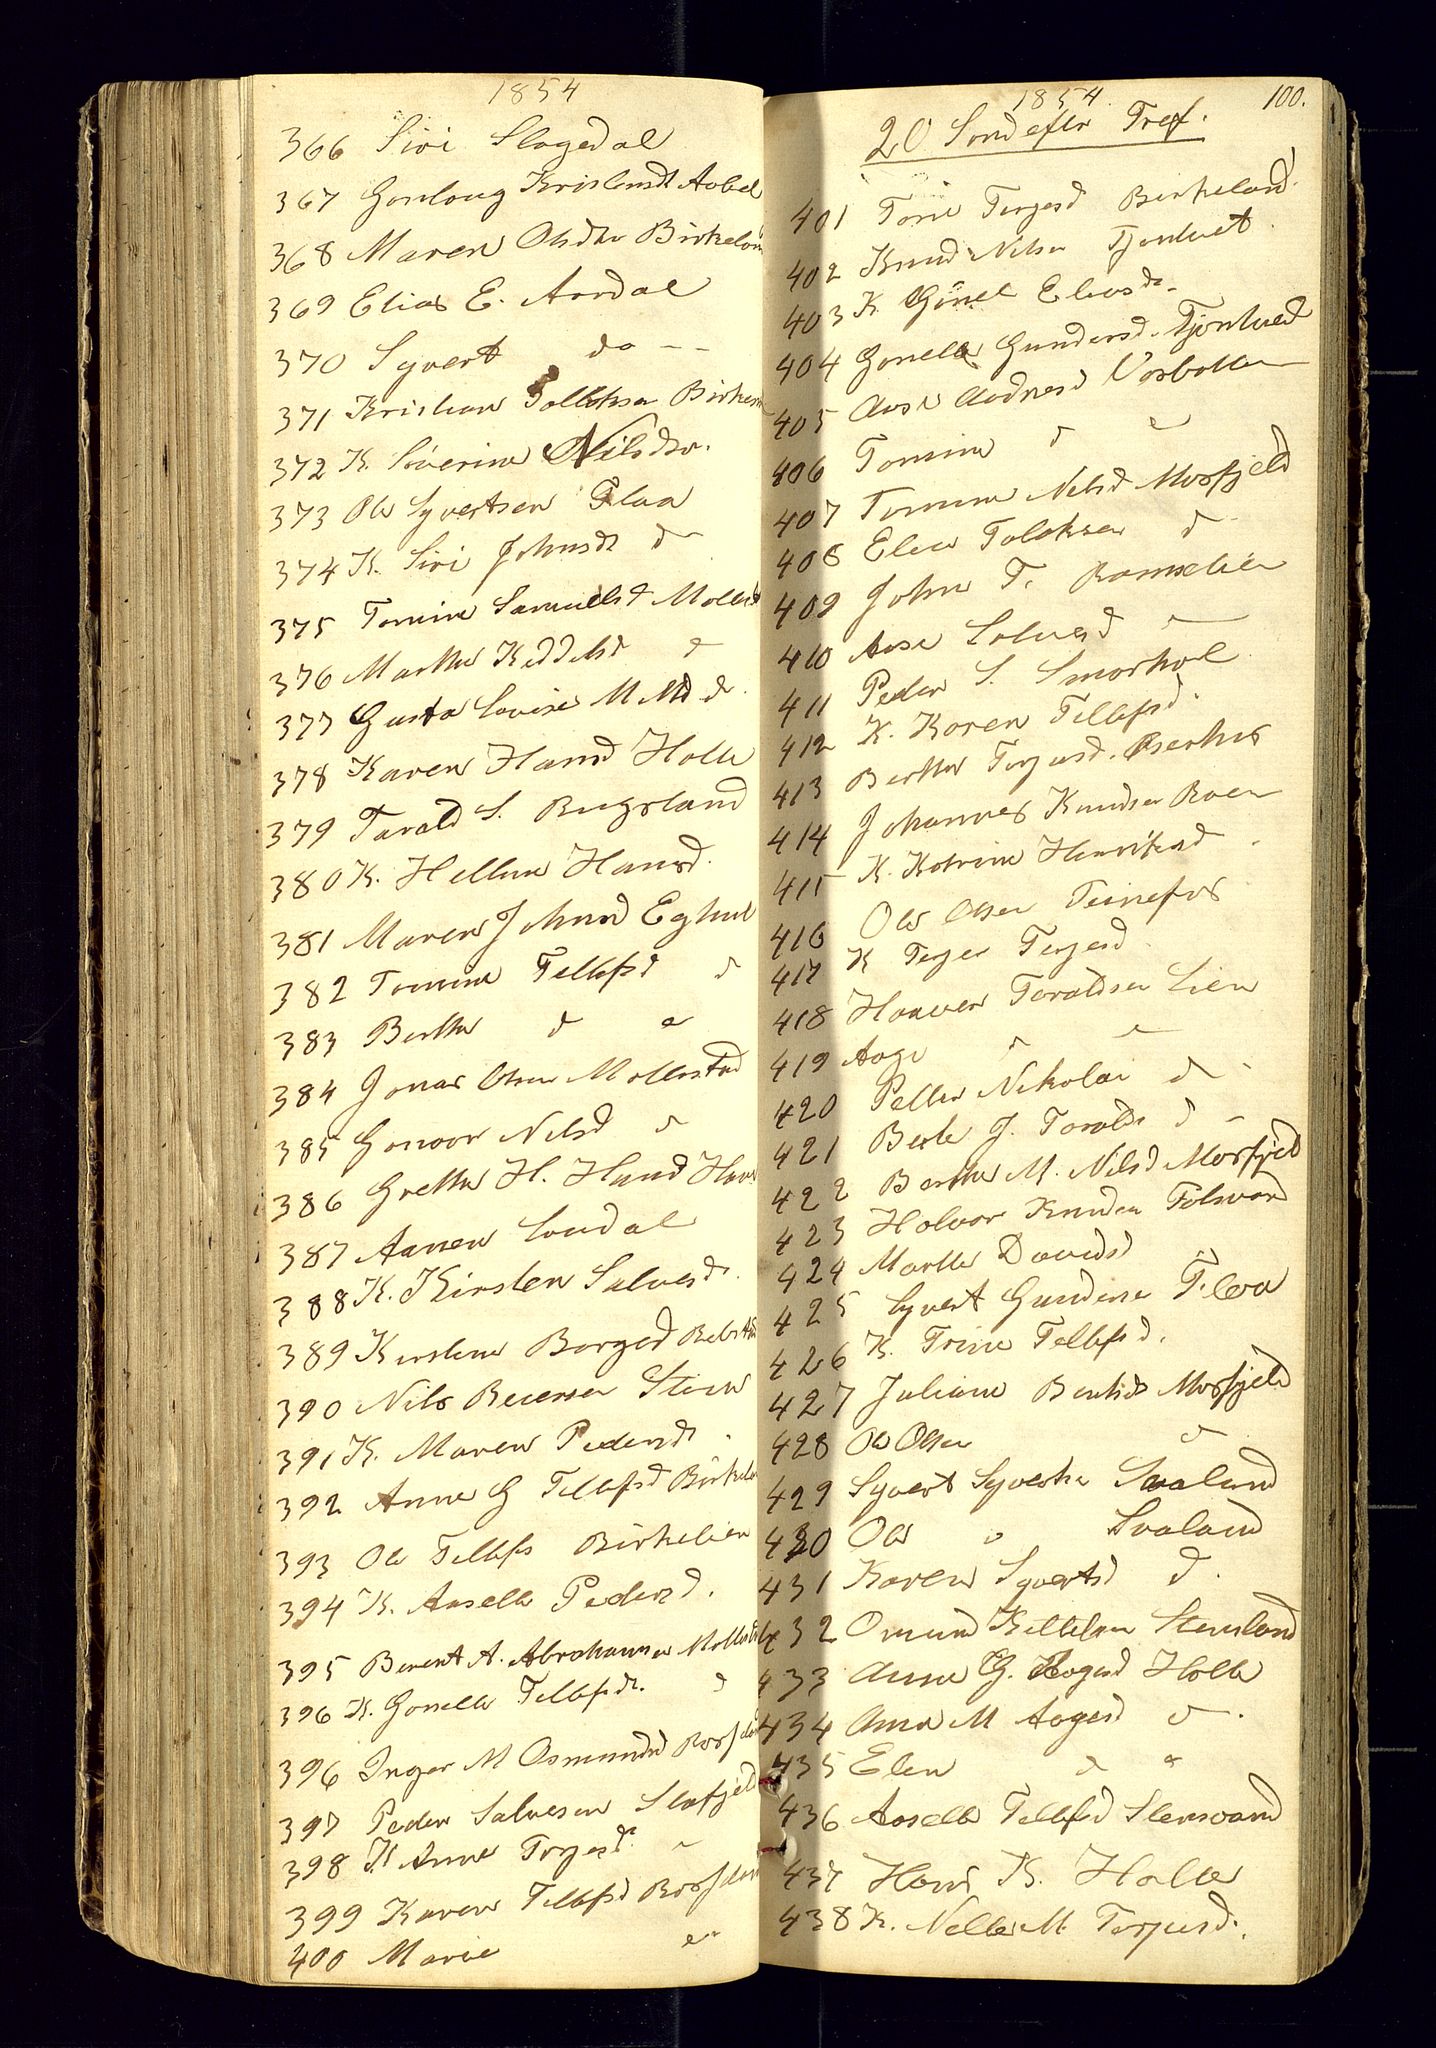 1854
366 Siri Slagedal
367 Gunloug Kristensdt Aabel
368 Maren Olsdtr Birkelan
369 Elias E. Aardal
370 Syvert do - -
371 Kristian Tollefsen Birken
372 K. Severine Nilsdtr.
373 Ole Syvertsen Flaa
374 K. Siri Johnsdt d
375 Tomine Samuelsd Mollest
376 Marthe Keddelsd d
377 Gusta Lovise M. Md d.
378 Karen Hansd Holle
379 Tarald S. Bugsland
380 K. Hellene Hansd.
381 Maren Johnsd Eghul
382 Tomine Tellefsd d
383 Berthe d e
384 Jonas Olsen Mollestad
385 Gonoor Nilsd d
386 Grethe H. Hansd
387 Aanen Loudal
388 K. Kirsten Salvesdt.
389 Kirstine Borgesd
390 Nils Steen
391 K. Maren Pedersdt.
392 Anne G Tellefsd Birkelan
393 Ole Tellefs Birkelien
394 K. Aaselle Pedersd.
395 Berent A. Abrahamsen Mollest
396 K. Gonelle Tellefsdt. d
396 Inger M Osmundsd
397 Peder Salvesen
398 K Anne Torjesd.
399 Karen Tellefsd
400 Marie e
1854.
100.
20 Sond efter Tref.
401 Tone Terjesd Birkeland.
402 Knud Nilsen Tjonlvet.
403 K. Gunel Eliesd.
404 Gonelle Gundersd. Tjonlved
405 Aase Aadnesd Vosbotten
406 Tomine d e
407 Tomine Nilsd Mosfjeld
408 Elen Tolaksen d
409 John T. Ramselien
410 Aase Salvesd
411 Peder S. Smorhol
412 K. Karen Tellefsd
413 Berthe Terjesd.
414 Johannes Knudsen Roen
415 K. Katrine Henriksd.
416 Ole Olsen Teinefos
417 K Terjer Terjesd
418 Haaver Taraldsen Lien
419 Aage
420 Petter Nikolai d
421 J. Taralds d
422 Berthe M. Nilsd Mosfjeld
423 Halvor Knudsen
424 Marthe Davidsd
425 Syvert Gundersen Flaa
426 K. Trine Tellefsd.
427 Juliane Berthsdt Mosfjeld
428 Ole Olsen
429 Syvert Syvertsen Svaland
430 Ole Svaland
431 Karen Syvertsd d.
432 Omund Kittelsen Stensland
433 Anne G. Aagesd Holle
434 Anne M Aagesd
435 Elen d
436 Aaselle Tellefsd Stensvand
437 Hans K. Holle
438 K. Nelle M. Terjusd.